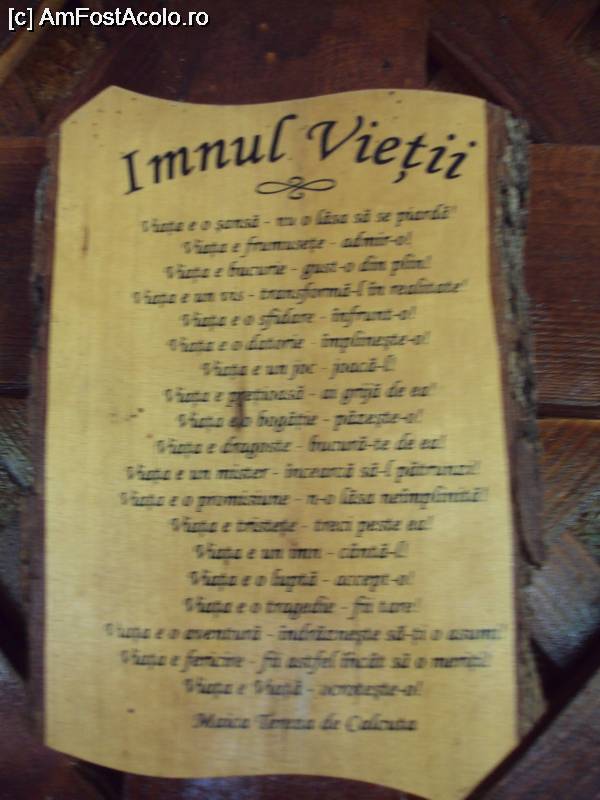 [c] AmFostAcolo.ro
Imnul Vieții
Viața e o șansă - nu o lăsa să se piardă!
Viața e frumusețe - admir-o!
Viața e bucurie - gust-o din plin!
Viața e un vis - transformă-l în realitate!
Viața e o sfidare - înfrunt-o!
Viața e o datorie - împlinește-o!
Viața e un joc - joacă-l!
Viața e prețioasă - ai grijă de ea!
Viața e o bogăție - păzește-o!
Viața e dragoste - bucură-te de ea!
Viața e un mister - încearcă să-l pătrunzi!
Viața e o promisiune - n-o lăsa neîmplinită!
Viața e tristețe - treci peste ea!
Viața e un imn - cântă-l!
Viața e o luptă - accept-o!
Viața e o tragedie - fii tare!
Viața e o aventură - îndrăznește să-ți o asumi!
Viața e fericire - fii astfel încât să o meriți!
Viața e Viață - ocrotește-o!
Maica Tereza de Calcutta